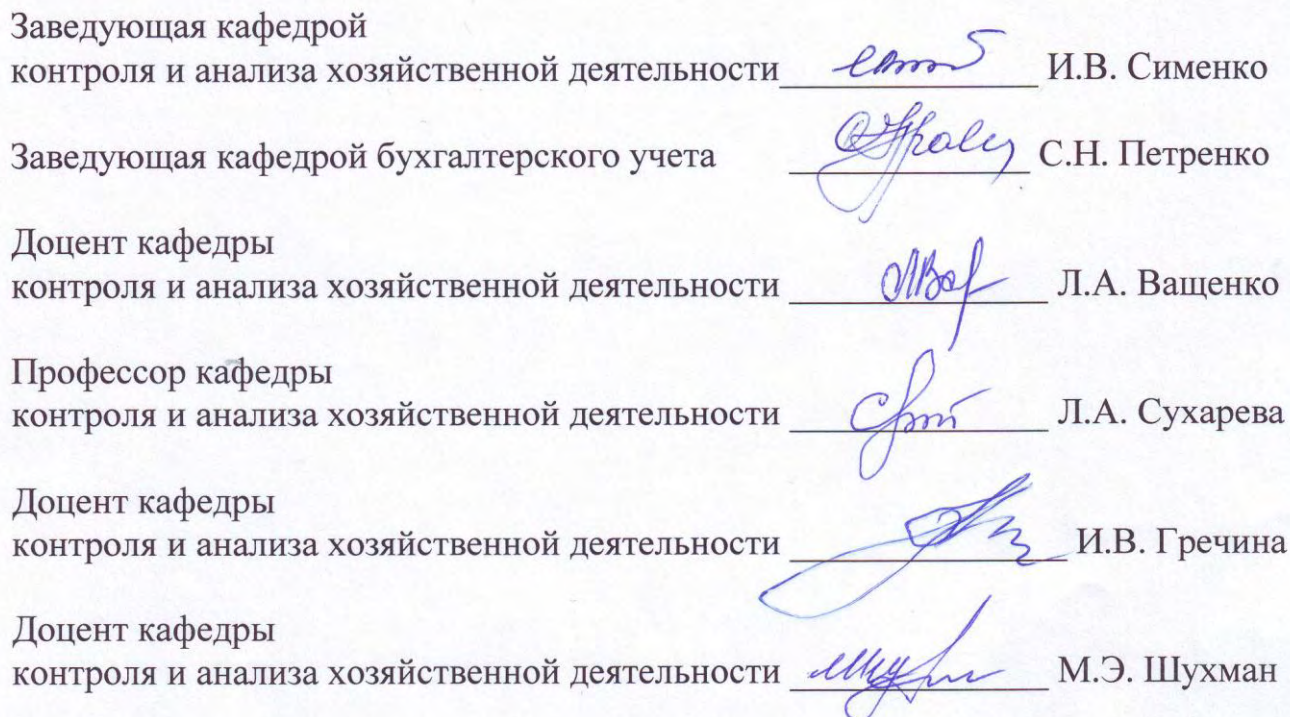 Заведующая кафедрой
контроля и анализа хозяйственной деятельности И.В. Сименко
Заведующая кафедрой бухгалтерского учета С.Н. Петренко
Доцент кафедры
контроля и анализа хозяйственной деятельности Л.А. Ващенко
Профессор кафедры
контроля и анализа хозяйственной деятельности Л.А. Сухарева
Доцент кафедры
контроля и анализа хозяйственной деятельности И.В. Гречина
Доцент кафедры
контроля и анализа хозяйственной деятельности М.Э. Шухман